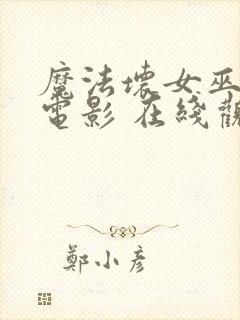 魔法壞女巫
電影 在綫觀
鄭小彥